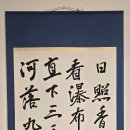 日照香
看瀑布
直下三
河落九